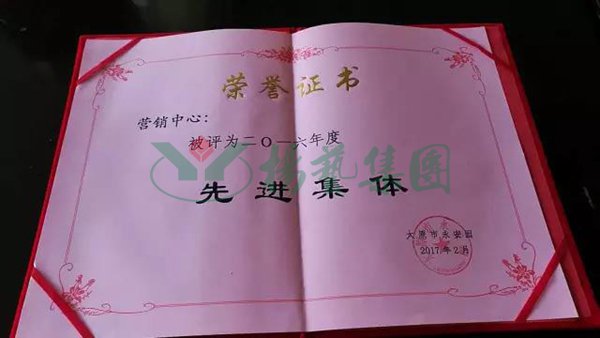 荣誉证书
营销中心:
被评为二O一六年度
杨艺集团
先进集体
太原市永安园
2017年2月